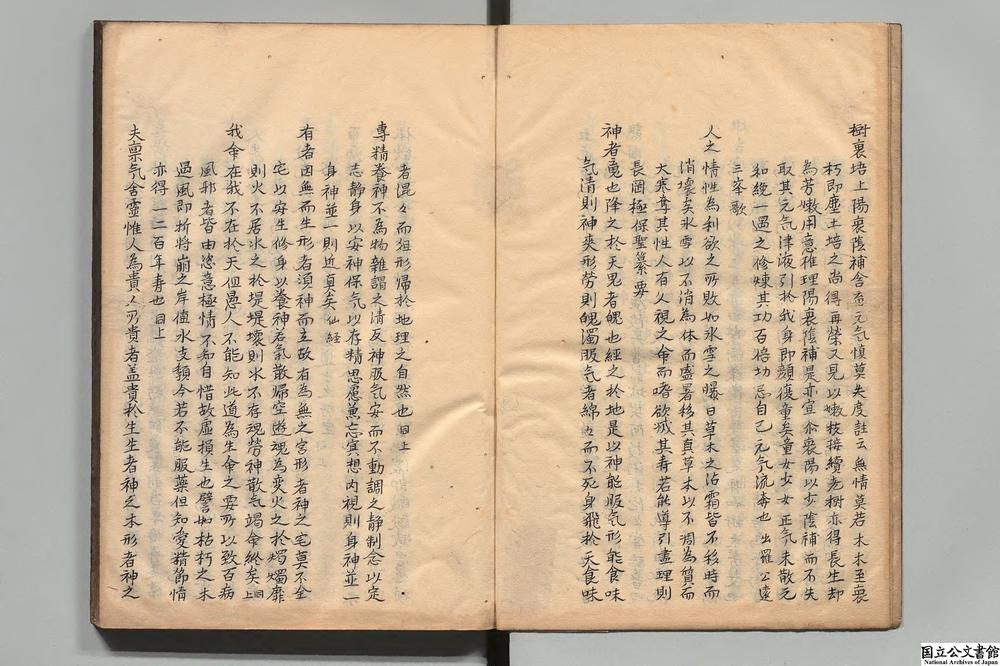 樹衰培土陽衰陰補含育元气慎莫失度註云無情莫若木木至衰
朽即塵土培之尚得再榮又見以嫩枝接續老樹亦得長生却
為芳嫩用意推理陽衰陰補是亦宜尒衰陽以少陰補而不失
取其元气津液引於我身即顏復童矣童女少女正气未散元
和純一遇之修煉其功百倍切忌自己元气流奔也 出羅公遠
三峯歌
人之情性為利欲之所敗如氷雪之曝日草木之沾霜皆不移時而
消壞矣氷雪以不消為体而盛暑移其真草木以不凋為質而
大寒奪其性人有久視之命而嗜欲滅其寿若能導引盡理則
長罔極保聖纂要
神者䰟也降之於天鬼者魄也經之於地是以神能服气形能食味
气清則神爽形勞則魄濁服气者綿々而不死身飛於天食味
者混々而徂形歸於地理之自然也 同上
專精養神不為物雜謂之清反神服气安而不動謂之静制念以定
志静身以安神保气以存精思慮兼忘宜想内視則身神並一
身神並一則近真矣 仙経
有者因無而生形者須神而立故有為無之宮形者神之宅莫不全
宅以安生修身以養神若氣散歸空遊魂為変火之於燭燭靡
則火不居水之於堤堤壊則水不存魂勞神散气竭命終矣 同上
我命在我不在於天但愚人不能知此道為生命之要所以致百病
風邪者皆由恣意極情不知自惜故虚損生也譬如枯朽之木
遇風即折将崩之岸值水支頽今若不能服藥但知愛精節情
亦得一二百年寿也 同上
夫禀气含靈惟人為貴人所貴者盖貴於生生者神之本形者神之
国立公文書館
National Archives of Japan